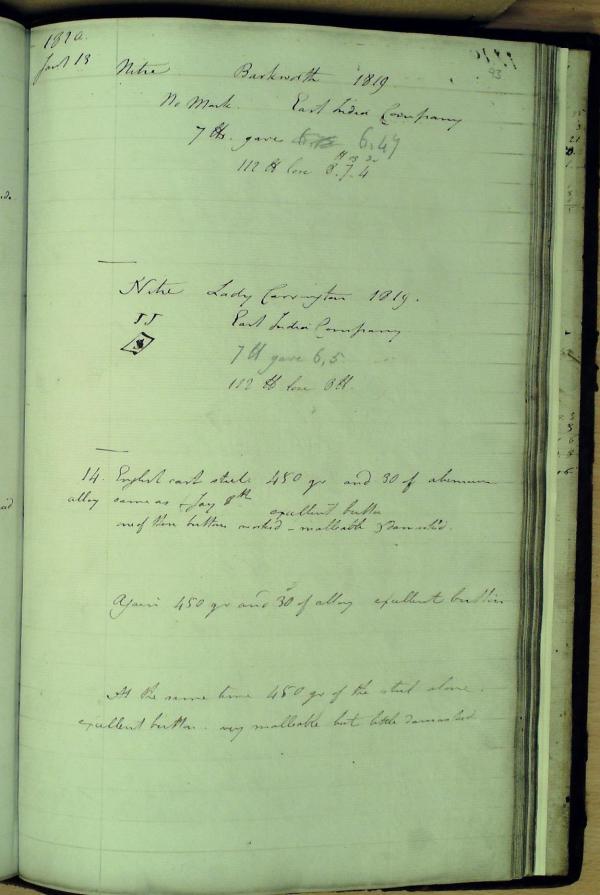 1820.
Jany 13 Nitre Barkworth 1819
93
No Mark. East India Company
7 lb. gave 6.47
112 lb lose 8.7.4
Nitre Lady Carrington 1819.
JJ East India Company
7 lb gave 6,5
112 lb lose 8 lb.
14. English cast steel 450 gr and 30 of
alloy same as Jany 8th excellent button
one of these buttons worked - malleable & damask'd.
Again 450 gr and 30 of alloy excellent button
At the same time 450 gr of the steel alone.
excellent button. very malleable but little damasked